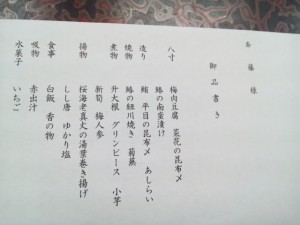 斉藤様
御品書き
八寸 梅肉豆腐 菜花の昆布〆
鰆の南蛮漬け
造り 鮪 平目の昆布〆 あしらい
焼物 鰆の細川焼き 菊蕪
煮物 丹大根 グリンピース 小芋
新筍 梅人参
揚物 桜海老真丈の湯葉巻き揚げ
しし唐 ゆかり塩
食事 白飯 香の物
吸物 赤出汁
水菓子 いちご